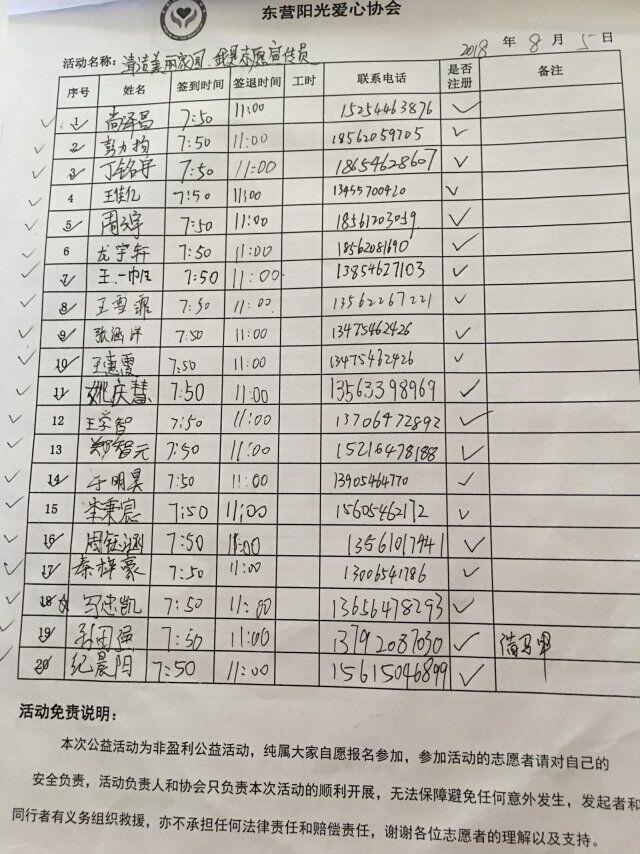 东营阳光爱心协会
活动名称：清洁美丽家园，我是志愿宣传员 2018 年 8 月 5 日
序号 姓名 签到时间 签退时间 工时 联系电话 是否注册 备注
1 尚泽昌 7:50 11:00 15254463876 ✓
2 彭力扬 7:50 11:00 18562059705 ✓
3 丁铭宇 7:50 11:00 18654628607 ✓
4 王佳亿 7:50 11:00 13455700420 ✓
5 周子宇 7:50 11:00 18561203059 ✓
6 尤宇轩 7:50 11:00 18562081690 ✓
7 王一帆 7:50 11:00 13854627103 ✓
8 王雪霏 7:50 11:00 13562267221 ✓
9 张涵洋 7:50 11:00 13475462426 ✓
10 王惠雯 7:50 11:00 13475462426 ✓
11 姚庆慧 7:50 11:00 13563398969 ✓
12 王学智 7:50 11:00 13706472892 ✓
13 郑智元 7:50 11:00 15216478188 ✓
14 于明昊 7:50 11:00 13905464770 ✓
15 李秉宸 7:50 11:00 15605462172 ✓
16 周钰涵 7:50 11:00 13561017441 ✓
17 秦梓豪 7:50 11:00 13006541786 ✓
18 忠凯 7:50 11:00 13656478293 ✓
19 7:50 11:00 13792087030 ✓
20 纪晨阳 7:50 11:00 15615046899 ✓
活动免责说明：
本次公益活动为非盈利公益活动，纯属大家自愿报名参加，参加活动的志愿者请对自己的
安全负责，活动负责人和协会只负责本次活动的顺利开展，无法保障避免任何意外发生，发起者和
同行者有义务组织救援，亦不承担任何法律责任和赔偿责任，谢谢各位志愿者的理解以及支持。